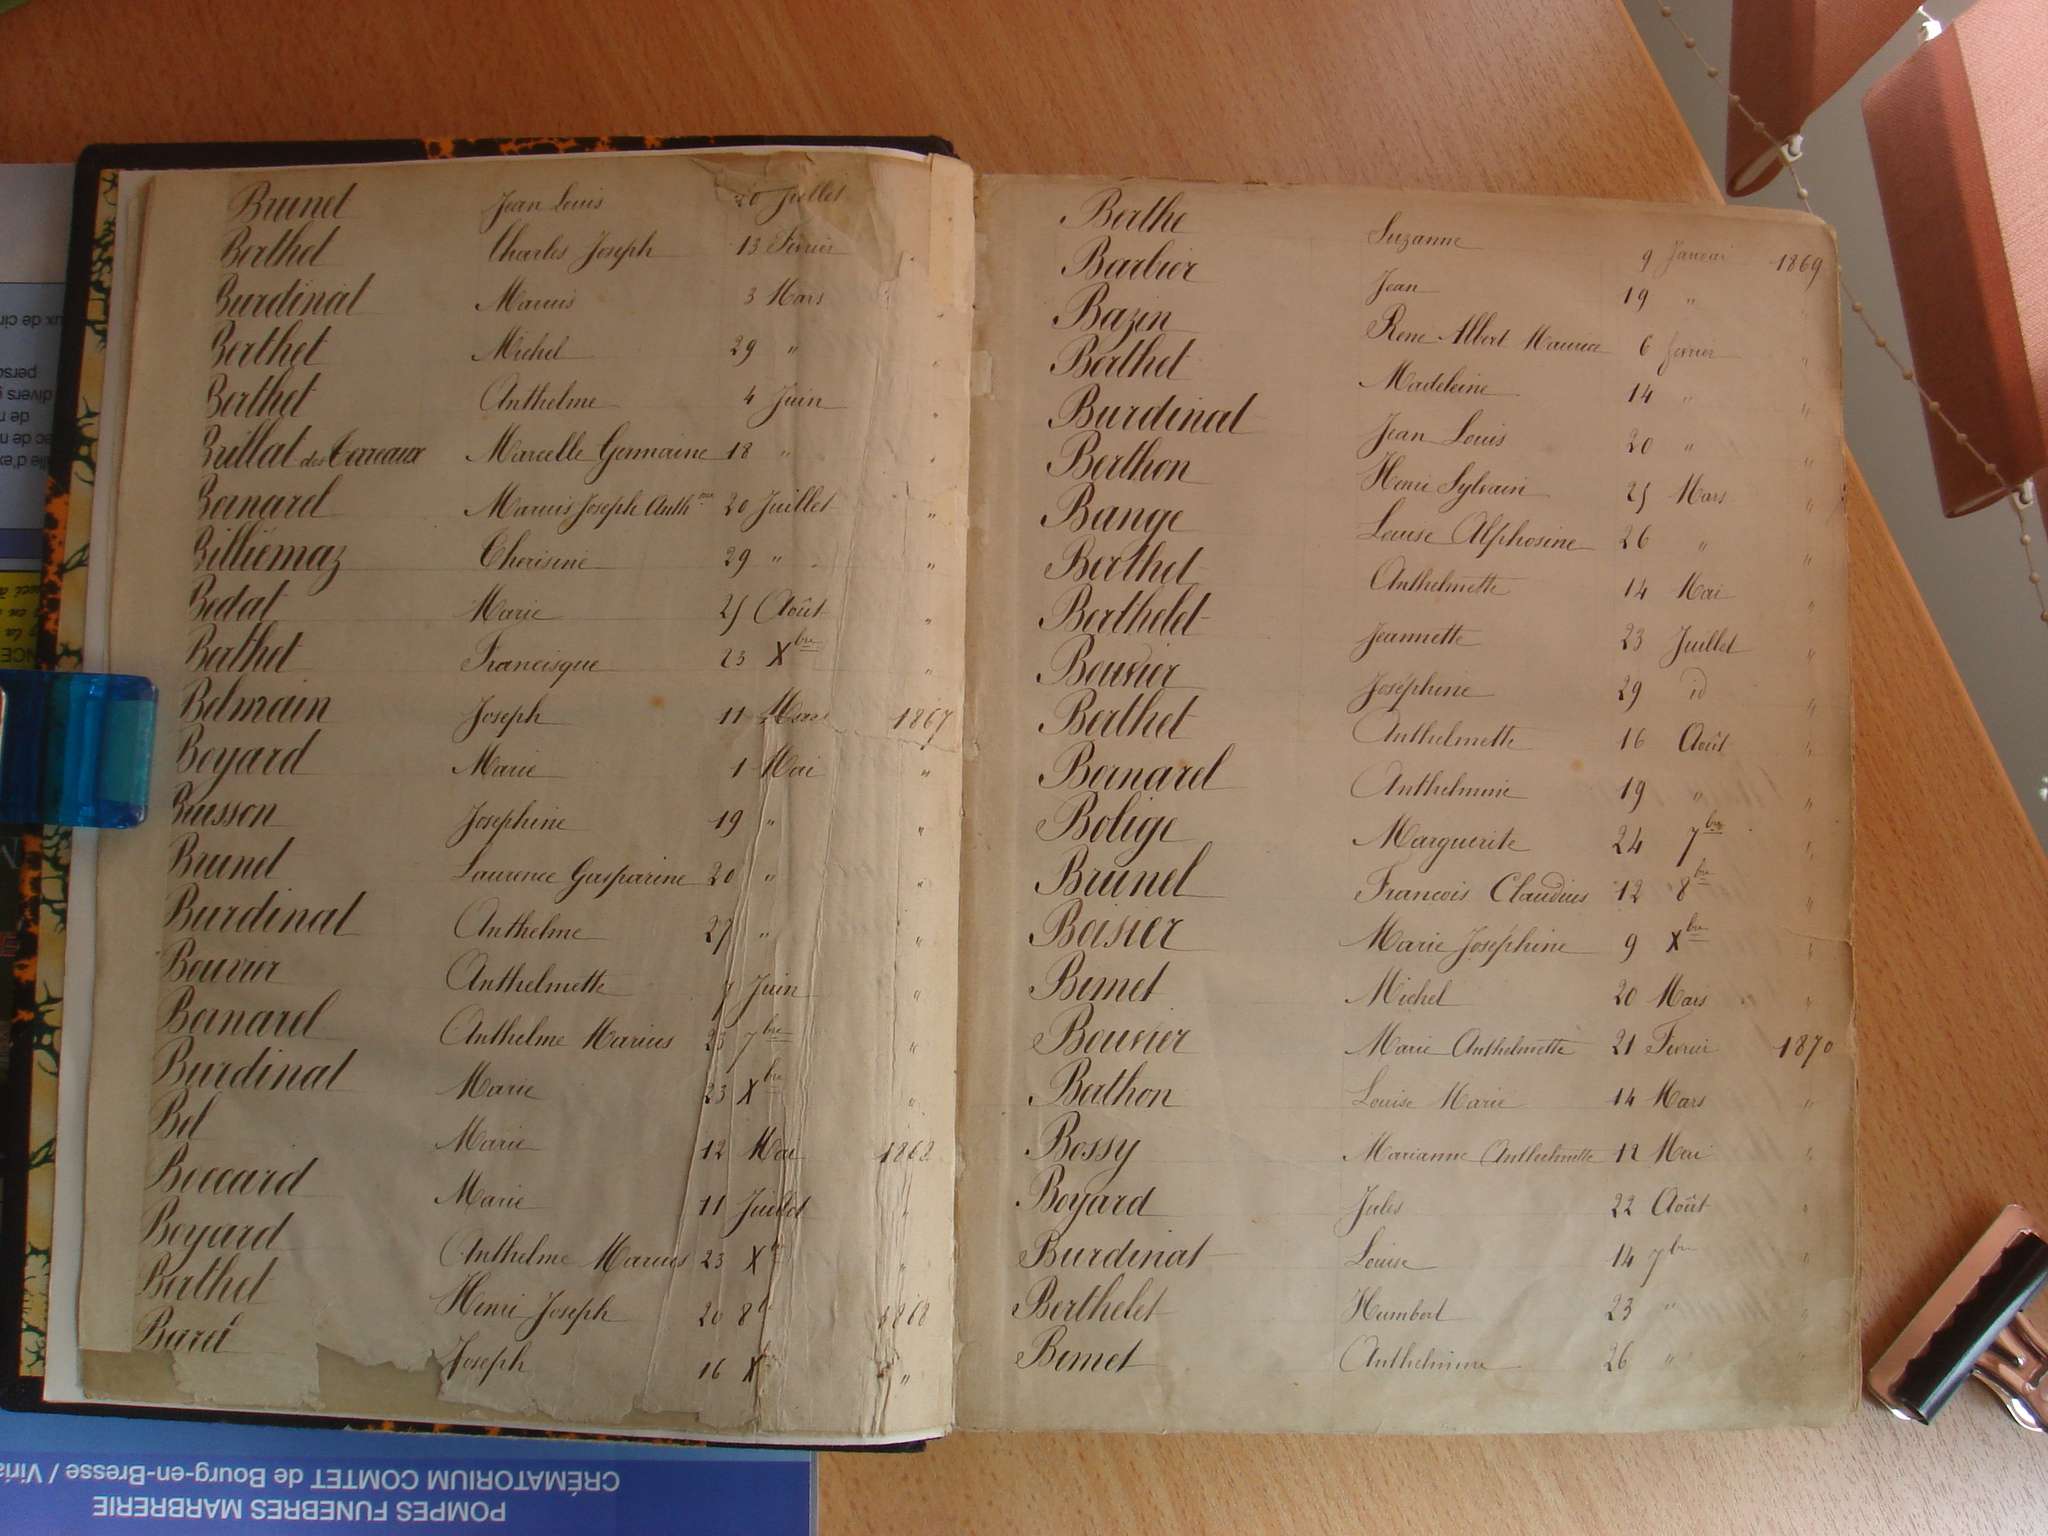 Brunet Jean Louis 20 Juillet
Berthet Charles Joseph 13 Fevrier
Burdinat Marius 3 Mars "
Berthet Michel 29 " "
Berthet Anthelme 4 Juin "
Brillat des Terreaux Marcelle Germaine 18 " "
Bernard Marius Joseph Anth.me 20 Juillet "
Billiémaz Therisine 29 " "
Bedat Marie 25 Août "
Berthet Francisque 23 Xbre "
Belmain Joseph 11 Mars 1867
Boyard Marie 1 Mai "
Buisson Josephine 19 " "
Brunet Laurence Gasparine 20 " "
Burdinat Anthelme 27 " "
Bouvier Anthelmette 7 Juin "
Bernard Anthelme Marius 25 7bre "
Burdinat Marie 23 Xbre "
Bel Marie 12 Mai 1868
Boccard Marie 11 Juillet "
Boyard Anthelme Marius 23 X "
Berthet Henri Joseph 20 8b 1868
Baret Joseph 16 X "
Berthe Suzanne 9 Janvier 1869
Barbier Jean 19 " "
Bazin Rene Albert Maurice 6 fevrier "
Berthet Madeleine 14 " "
Burdinat Jean Louis 20 " "
Berthon Henri Sylvain 25 Mars "
Bange Louise Alphosine 26 " "
Berthet Anthelmette 14 Mai "
Berthelet Jeannette 23 Juillet "
Bouvier Joséphine 29 id "
Berthet Anthelmette 16 Août "
Bernard Anthelmine 19 " "
Bolige Marguerite 24 7bre "
Brunet Francois Claudius 12 8bre "
Boisier Marie Joséphine 9 Xbre "
Bimet Michel 20 Mars "
Bouvier Marie Anthelmette 21 Fevrier 1870
Berthon Louise Marie 14 Mars "
Bossy Marianne Anthelmette 12 Mai "
Boyard Jules 22 Août "
Burdinat Louise 14 7bre "
Berthelet Humbert 23 " "
Bimet Anthelmine 26 "
CRÉMATORIUM COMTET de Bourg-en-Bresse / Viria
POMPES FUNEBRES MARBRERIE